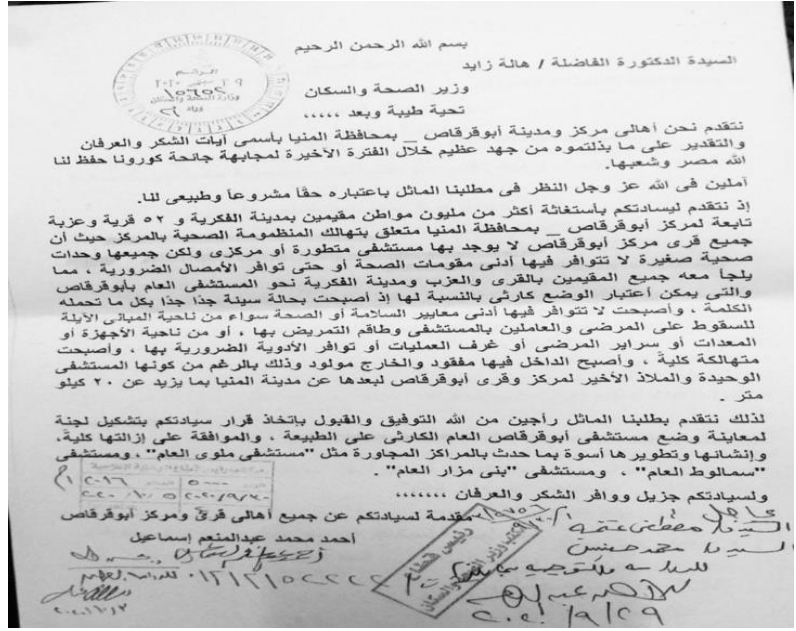 بسم الله الرحمن الرحيم
السيدة الدكتورة الفاضلة / هالة زايد
وزير الصحة والسكان
تحية طيبة وبعد ،،،،،
نتقدم نحن أهالى مركز ومدينة أبوقرقاص _ بمحافظة المنيا بأسمى أيات الشكر والعرفان
والتقدير على ما بذلتموه من جهد عظيم خلال الفترة الأخيرة لمجابهة جائحة كورونا حفظ لنا
الله مصر وشعبها.
آملين فى الله عز وجل النظر فى مطلبنا الماثل باعتباره حقًا مشروعاً وطبيعى لنا.
إذ نتقدم ليسادتكم بأستغاثة أكثر من مليون مواطن مقيمين بمدينة الفكرية و ٥٢ قرية وعزبة
تابعة لمركز أبوقرقاص _ بمحافظة المنيا متعلق بتهالك المنظمومة الصحية بالمركز حيث أن
جميع قرى مركز أبوقرقاص لا يوجد بها مستشفى متطورة أو مركزى ولكن جميعها وحدات
صحية صغيرة لا تتوافر فيها أدنى مقومات الصحة أو حتى توافر الأمصال الضرورية ، مما
يلجأ معه جميع المقيمين بالقرى والعزب ومدينة الفكرية نحو المستشفى العام بأبوقرقاص
والتى يمكن أعتبار الوضع كارثى بالنسبة لها إذ أصبحت بحالة سيئة جدًا جدًا بكل ما تحمله
الكلمة ، وأصبحت لا تتوافر فيها أدنى معايير السلامة أو الصحة سواء من ناحية المبانى الأيلة
للسقوط على المرضى والعاملين بالمستشفى وطاقم التمريض بها ، أو من ناحية الأجهزة أو
المعدات أو سراير المرضى أو غرف العمليات أو توافر الأدوية الضرورية بها ، وأصبحت
متهالكة كليةً ، وأصبح الداخل فيها مفقود والخارج مولود وذلك بالرغم من كونها المستشفى
الوحيدة والملاذ الأخير لمركز وقرى أبوقرقاص لبعدها عن مدينة المنيا بما يزيد عن ٢٠ كيلو
متر .
لذلك نتقدم بطلبنا الماثل راجين من الله التوفيق والقبول بإتخاذ قرار سيادتكم بتشكيل لجنة
لمعاينة وضع مستشفى أبوقرقاص العام الكارثى على الطبيعة ، والموافقة على إزالتها كليةً،
وإنشائها وتطويرها أسوة بما حدث بالمراكز المجاورة مثل "مستشفى ملوى العام" ، ومستشفى
"سمالوط العام" ، ومستشفى "بنى مزار العام" .
ولسيادتكم جزيل ووافر الشكر والعرفان ،،،،،،،
مقدمة لسيادتكم عن جميع أهالى قرىً ومركز أبوقرقاص
أحمد محمد عبدالمنعم إسماعيل
رئيس قطاع
٢٠٢٠/٩/٢٩